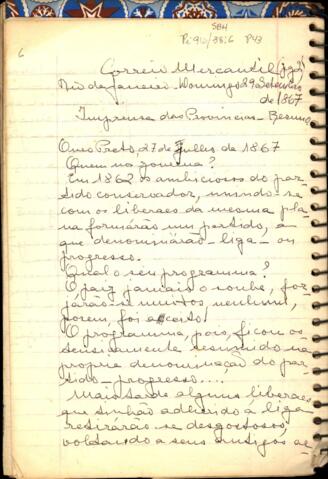 SBH
Pi 90/38:6 P43
6
Correio Mercantil
Rio de Janeiro - Domingo 29 Setembro
de 1867
Imprensa das Provincias - Resumo
Ouro Preto, 27 de Julho de 1867
Quem nos governa?
Em 1862 os ambiciosos do par-
tido conservador, unindo-se
com os liberaes da mesma pla-
na formárão um partido, a
que denominárão liga - ou
progresso.
Qual o seu programma?
O paiz jamais o soube, for-
járão-se muitos nenhum,
porem, foi aceito.
O programma, pois, ficou os-
tensivamente resumido na
propria denominação do par-
tido - progresso....
Mais tarde alguns liberaes
que tinhão adherido á liga
retirárão-se desgostosos,
voltando a seus antigos ar-